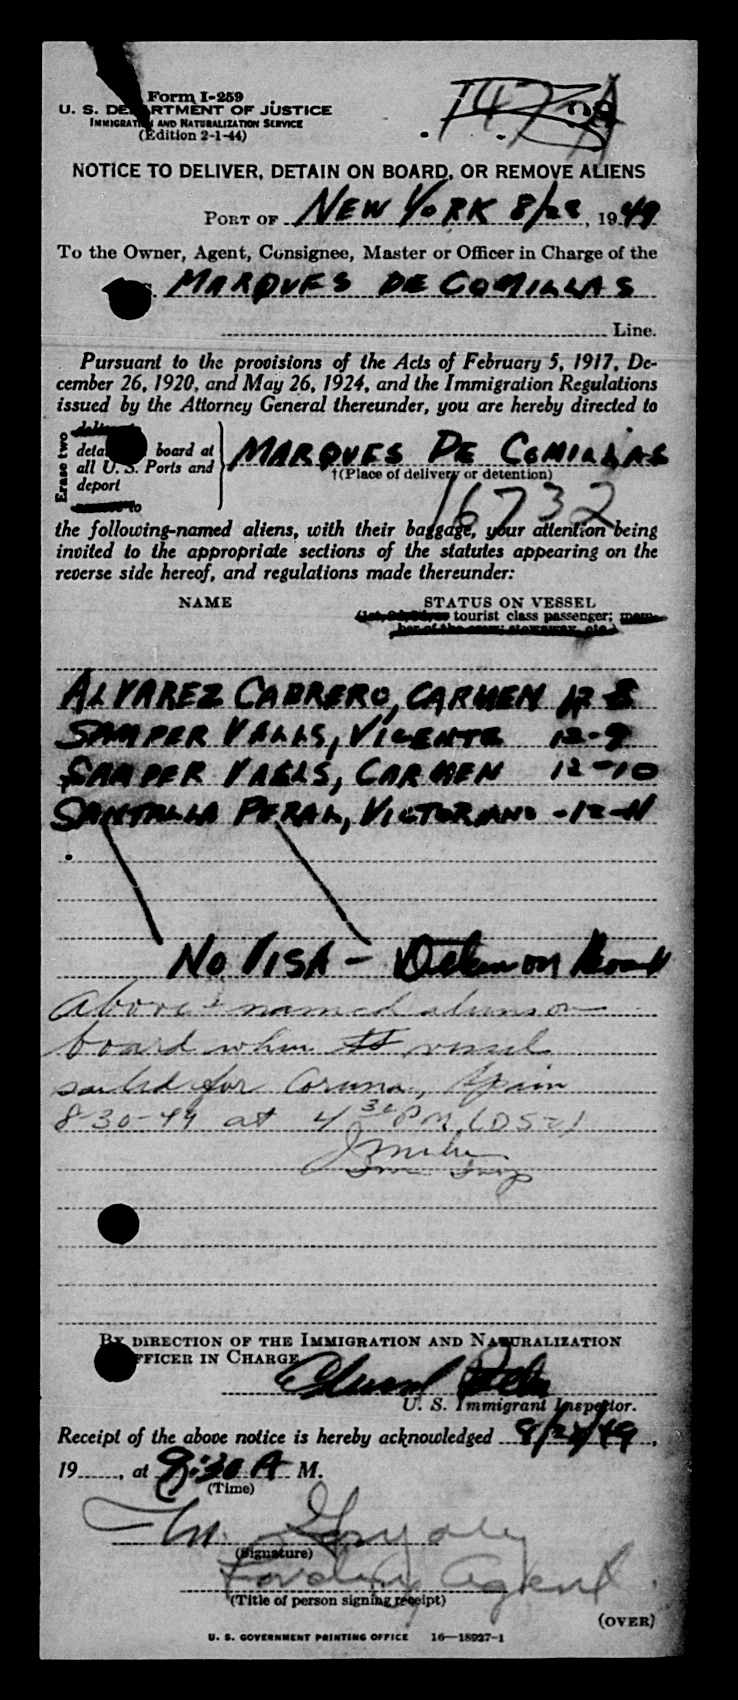 Form I-259
U. S. DEPARTMENT OF JUSTICE
IMMIGRATION AND NATURALIZATION SERVICE
(Edition 2-1-44)
NOTICE TO DELIVER, DETAIN ON BOARD, OR REMOVE ALIENS
PORT OF NEW YORK 8/28, 1949
To the Owner, Agent, Consignee, Master or Officer in Charge of the
MARQUES DE COMILLAS
Line.
Pursuant to the provisions of the Acts of February 5, 1917, De-
cember 26, 1920, and May 26, 1924, and the Immigration Regulations
issued by the Attorney General thereunder, you are hereby directed to
Erase two
board at
all U. S. Ports and
deport
MARQUES DE COMILLAS
†(Place of delivery or detention)
16732
the following-named aliens, with their baggage, your attention being
invited to the appropriate sections of the statutes appearing on the
reverse side hereof, and regulations made thereunder:
NAME STATUS ON VESSEL
tourist class passenger;
ALVAREZ CABRERO, CARMEN 12-8
SAMPER VALLS, VICENTE 12-9
SAMPER VALLS, CARMEN 12-10
SANTALLA PERAL, VICTORIANO -12-11
NO VISA - Detain on Board
Above named aliens on
board when SS vessel
sailed for Coruna, Spain
8-30-49 at 4 30 PM (DST)
BY DIRECTION OF THE IMMIGRATION AND NATURALIZATION
OFFICER IN CHARGE
U. S. Immigrant Inspector.
Receipt of the above notice is hereby acknowledged 8/28/49,
19......, at 9:30 A M.
(Time)
(Signature)
Boarding Agent
(Title of person signing receipt)
(OVER)
U. S. GOVERNMENT PRINTING OFFICE 16—18927-1